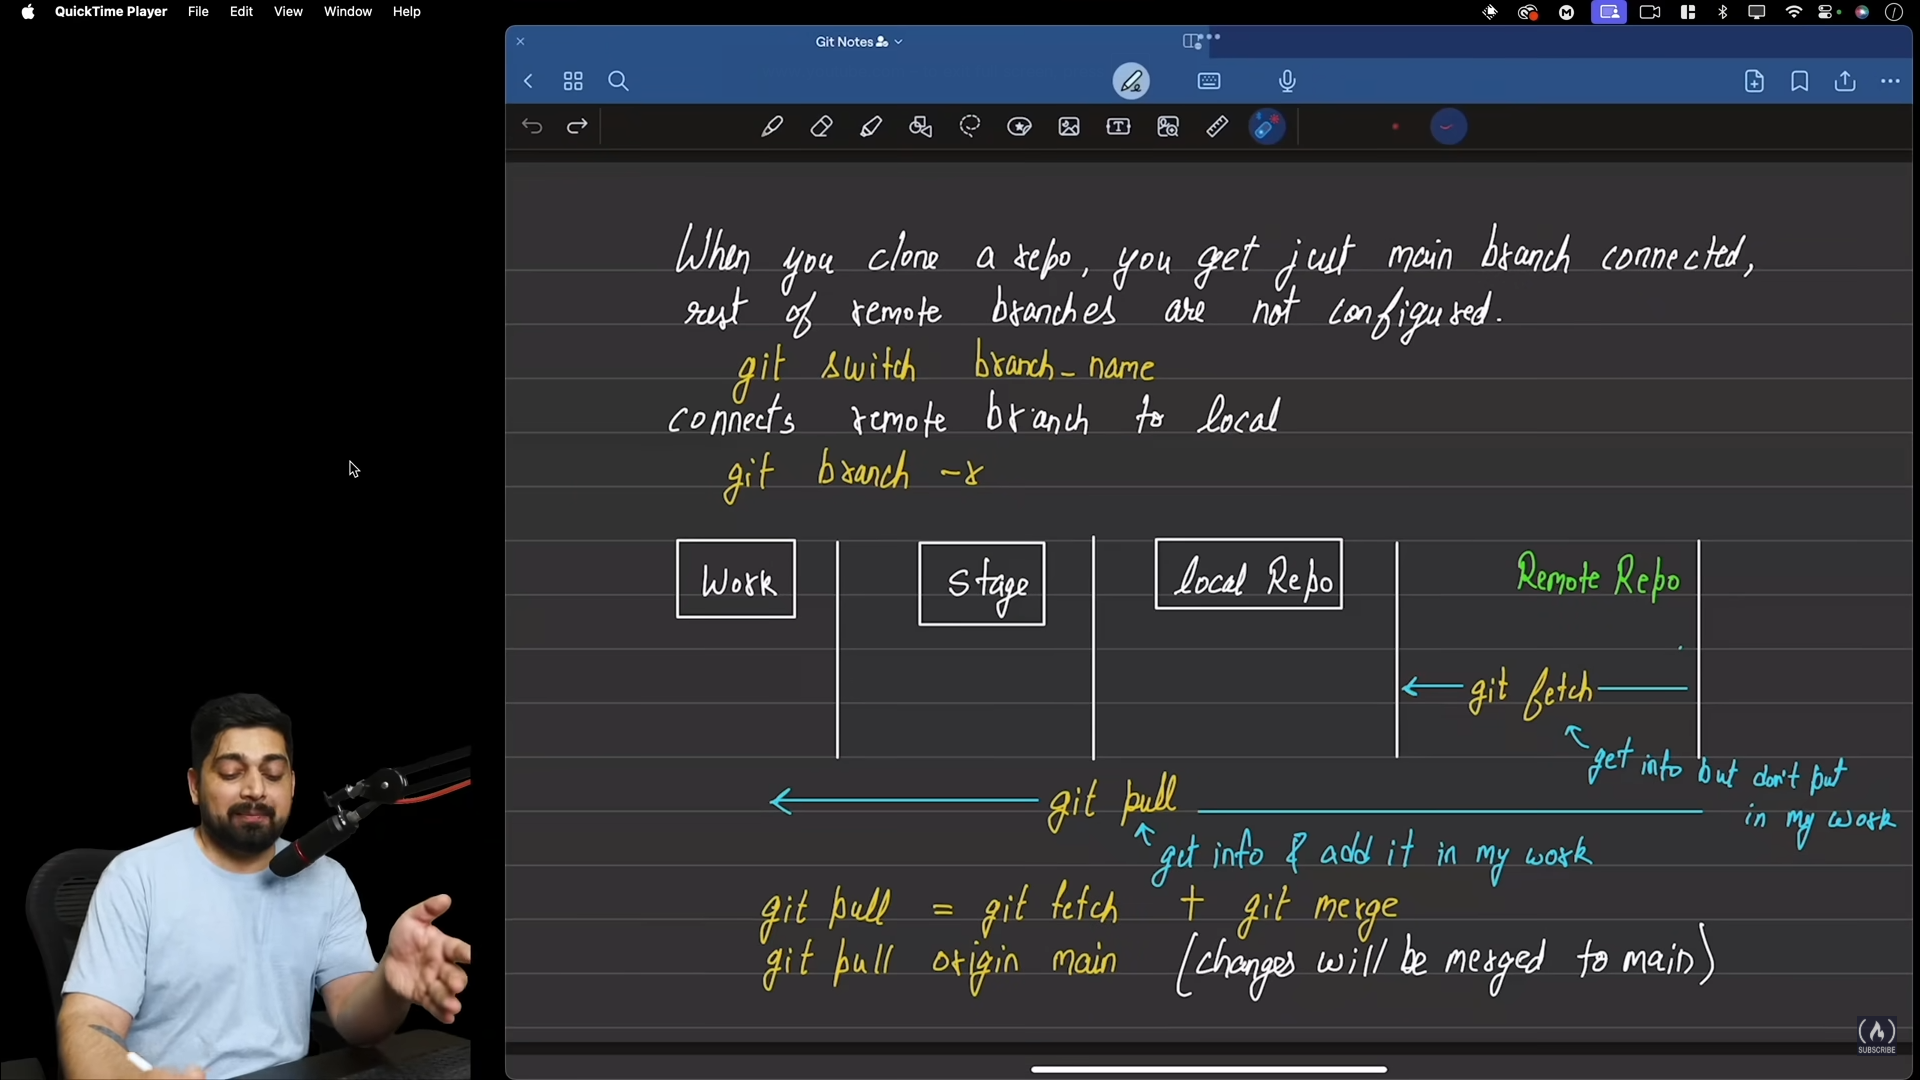 QuickTime Player File Edit View Window Help
Git Notes
When you clone a repo, you get just main branch connected,
rest of remote branches are not configured.
git switch branch_name
connects remote branch to local
git branch -r
Work Stage local Repo Remote Repo
git fetch
get info but don't put
in my work
git pull
get info & add it in my work
git pull = git fetch + git merge
git pull origin main (changes will be merged to main)
SUBSCRIBE